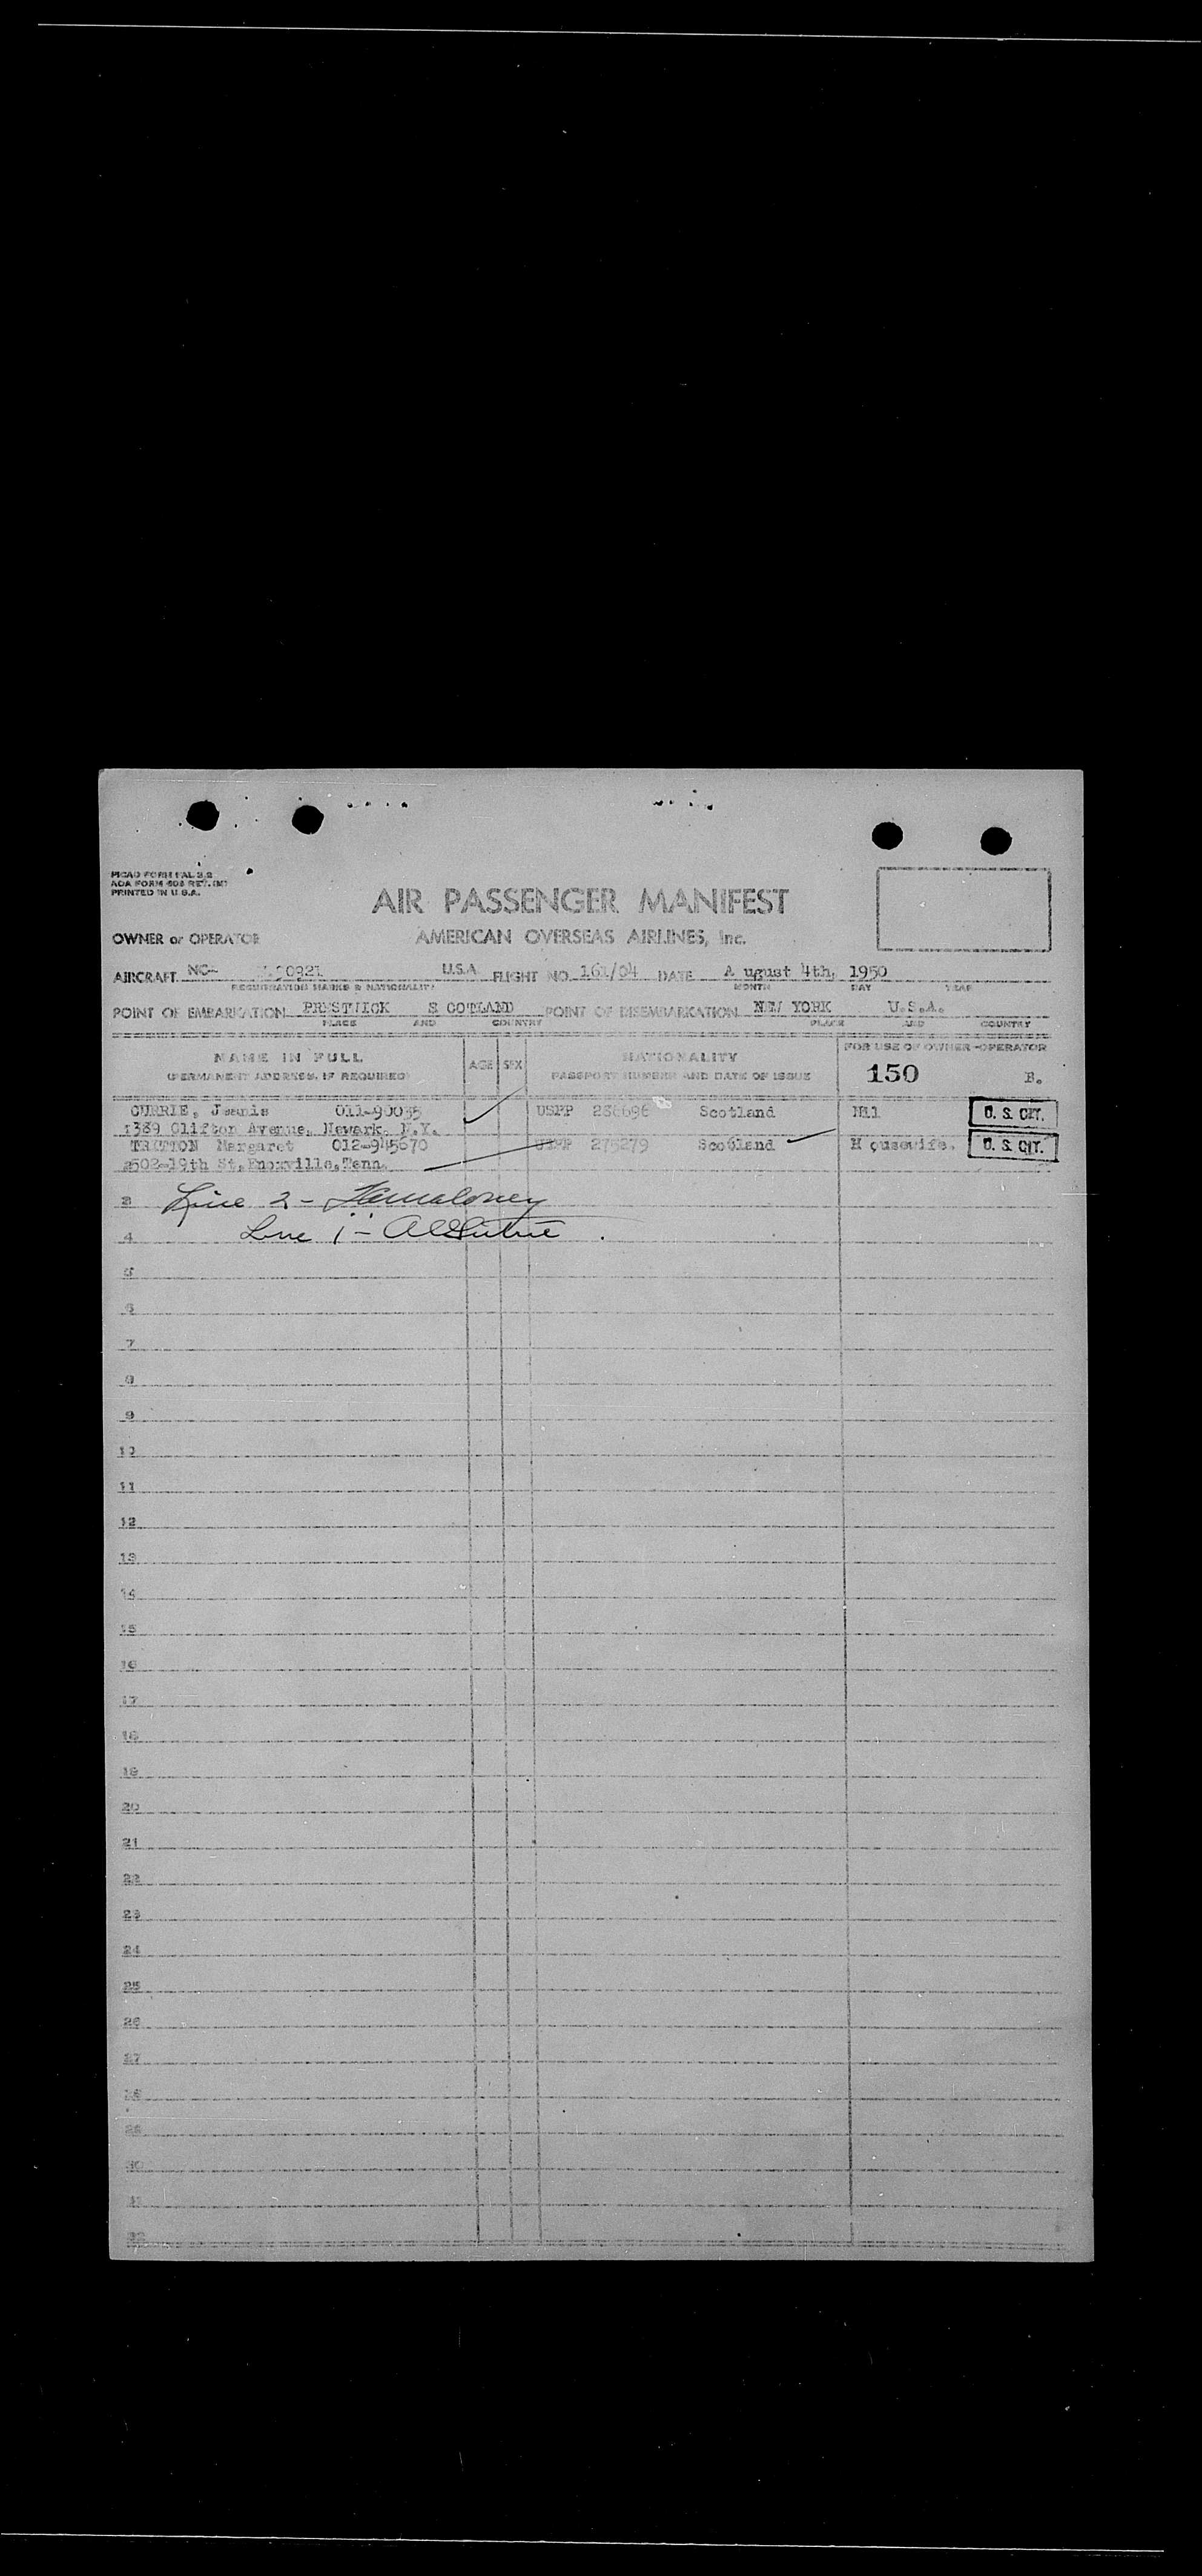 PICAO FORM FAL 2.2
AOA FORM 608 REV. (M)
PRINTED IN U.S.A.
AIR PASSENGER MANIFEST
OWNER or OPERATOR AMERICAN OVERSEAS AIRLINES, Inc.
AIRCRAFT NC- N90921 U.S.A FLIGHT NO. 161/04 DATE A ugust 4th, 1950
REGISTRATION MARKS & NATIONALITY MONTH DAY YEAR
POINT OF EMBARKATION PRESTWICK S COTLAND POINT OF DISEMBARKATION NEW YORK U.S.A.
PLACE AND COUNTRY PLACE AND COUNTRY
NAME IN FULL AGE SEX NATIONALITY FOR USE OF OWNER-OPERATOR
(PERMANENT ADDRESS, IF REQUIRED) PASSPORT NUMBER AND DATE OF ISSUE 150 B.
CURRIE, Jeanie 011-90035 USPP 236696 Scotland Nil U. S. CIT.
1389 Clifton Avenue, Newark. N.Y.
TRITTON Margaret 012-945670 USPP 275279 Scotland H ousewife. U. S. CIT.
2502-19th St, Knoxville, Tenn.
3 Line 2 -
4 Line 1 -
5
6
7
8
9
10
11
12
13
14
15
16
17
18
19
20
21
22
23
24
25
26
27
28
29
30
31
32